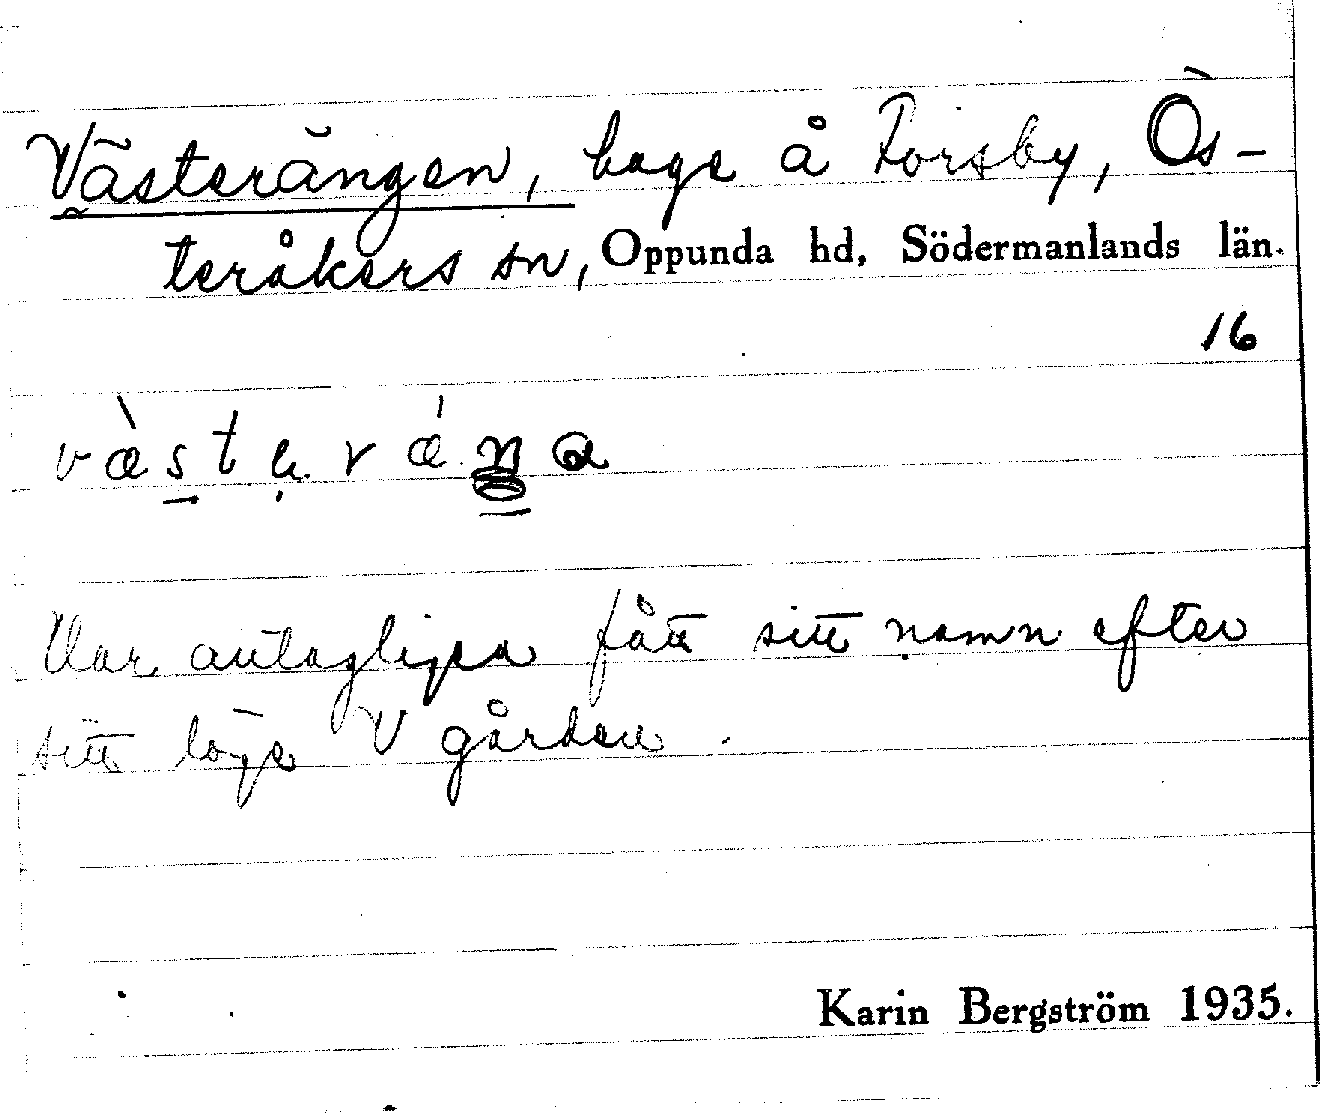 Västerängen, hage å Forsby, Ös-
teråkers sn, Oppunda hd, Södermanlands län.
16
væ̀stęrǽŋa
Har antagligen fått sitt namn efter
sitt läge V gården.
Karin Bergström 1935.